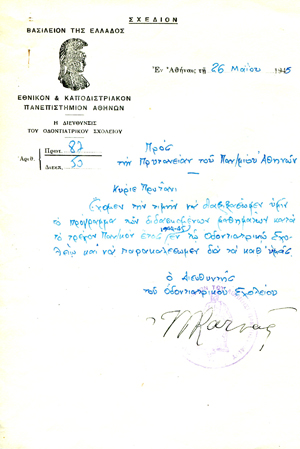 ΣΧΕΔΙΟΝ
ΒΑΣΙΛΕΙΟΝ ΤΗΣ ΕΛΛΑΔΟΣ
Ἐν Ἀθήναις τῇ 26 Μαΐου 1945
ΕΘΝΙΚΟΝ & ΚΑΠΟΔΙΣΤΡΙΑΚΟΝ
ΠΑΝΕΠΙΣΤΗΜΙΟΝ ΑΘΗΝΩΝ
Η ΔΙΕΥΘΥΝΣΙΣ
ΤΟΥ ΟΔΟΝΤΙΑΤΡΙΚΟΥ ΣΧΟΛΕΙΟΥ
Ἀριθ. Πρωτ. 87
Διεκπ. 50
Πρὸς
τὴν Πρυτανείαν τοῦ Παν/μίου Ἀθηνῶν
Κύριε Πρύτανι
Ἔχομεν τὴν τιμὴν νὰ διαβιβάσωμεν ὑμῖν
τὸ πρόγραμμα τῶν διδασκομένων μαθημάτων κατὰ
τὸ τρέχον Παν/μιον ἔτος 1944-45 ἐν τῷ Ὀδοντιατρικῷ Σχο-
λείῳ καὶ νὰ παρακαλέσωμεν διὰ τὰ καθ' ὑμᾶς.
Ὁ Διευθυντὴς
τοῦ Ὀδοντιατρικοῦ Σχολείου